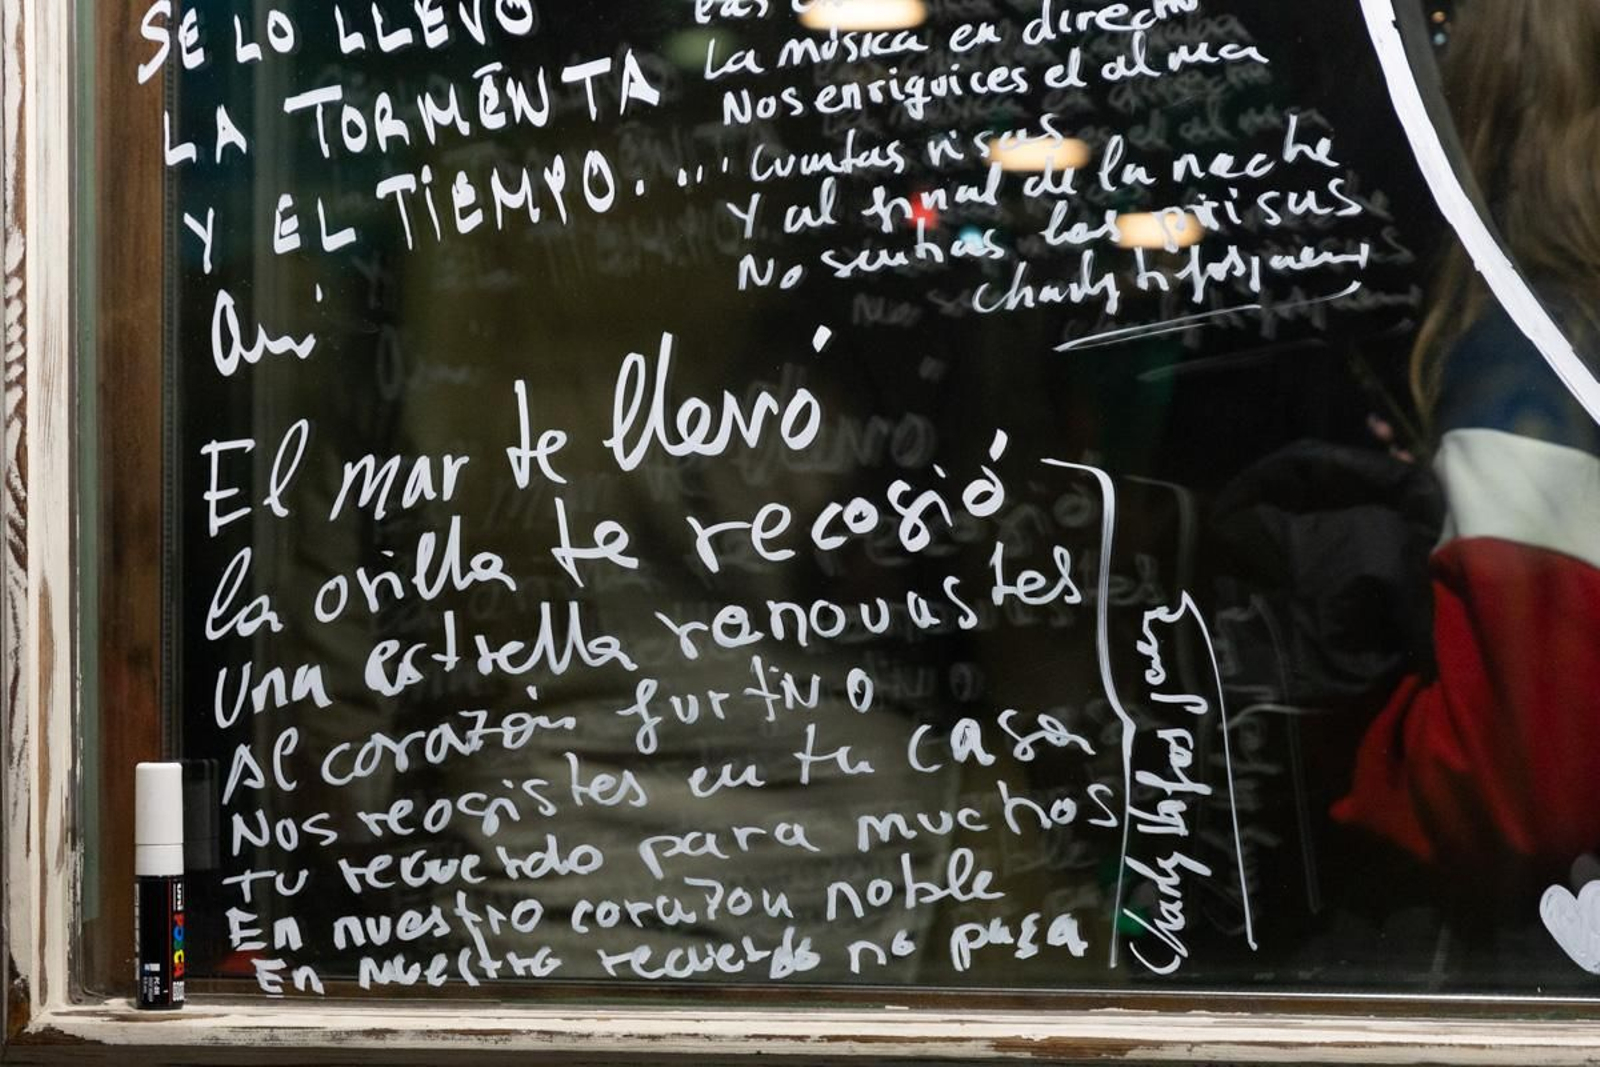 SE LO LLEVÓ
LA TORMENTA
Y EL TIEMPO....
La música en directo
Nos enriquices el alma
Cuentas risas
Y al final de la noche
No sentias las prisas
El mar te llevó
la orilla te recogió
una estrella renovastes
Al corazón furtivo
Nos reogistes en tu casa
tu recuerdo para muchos
En nuestro corazón noble
En nuestro recuerdo no pasa
Charly
uni POSCA